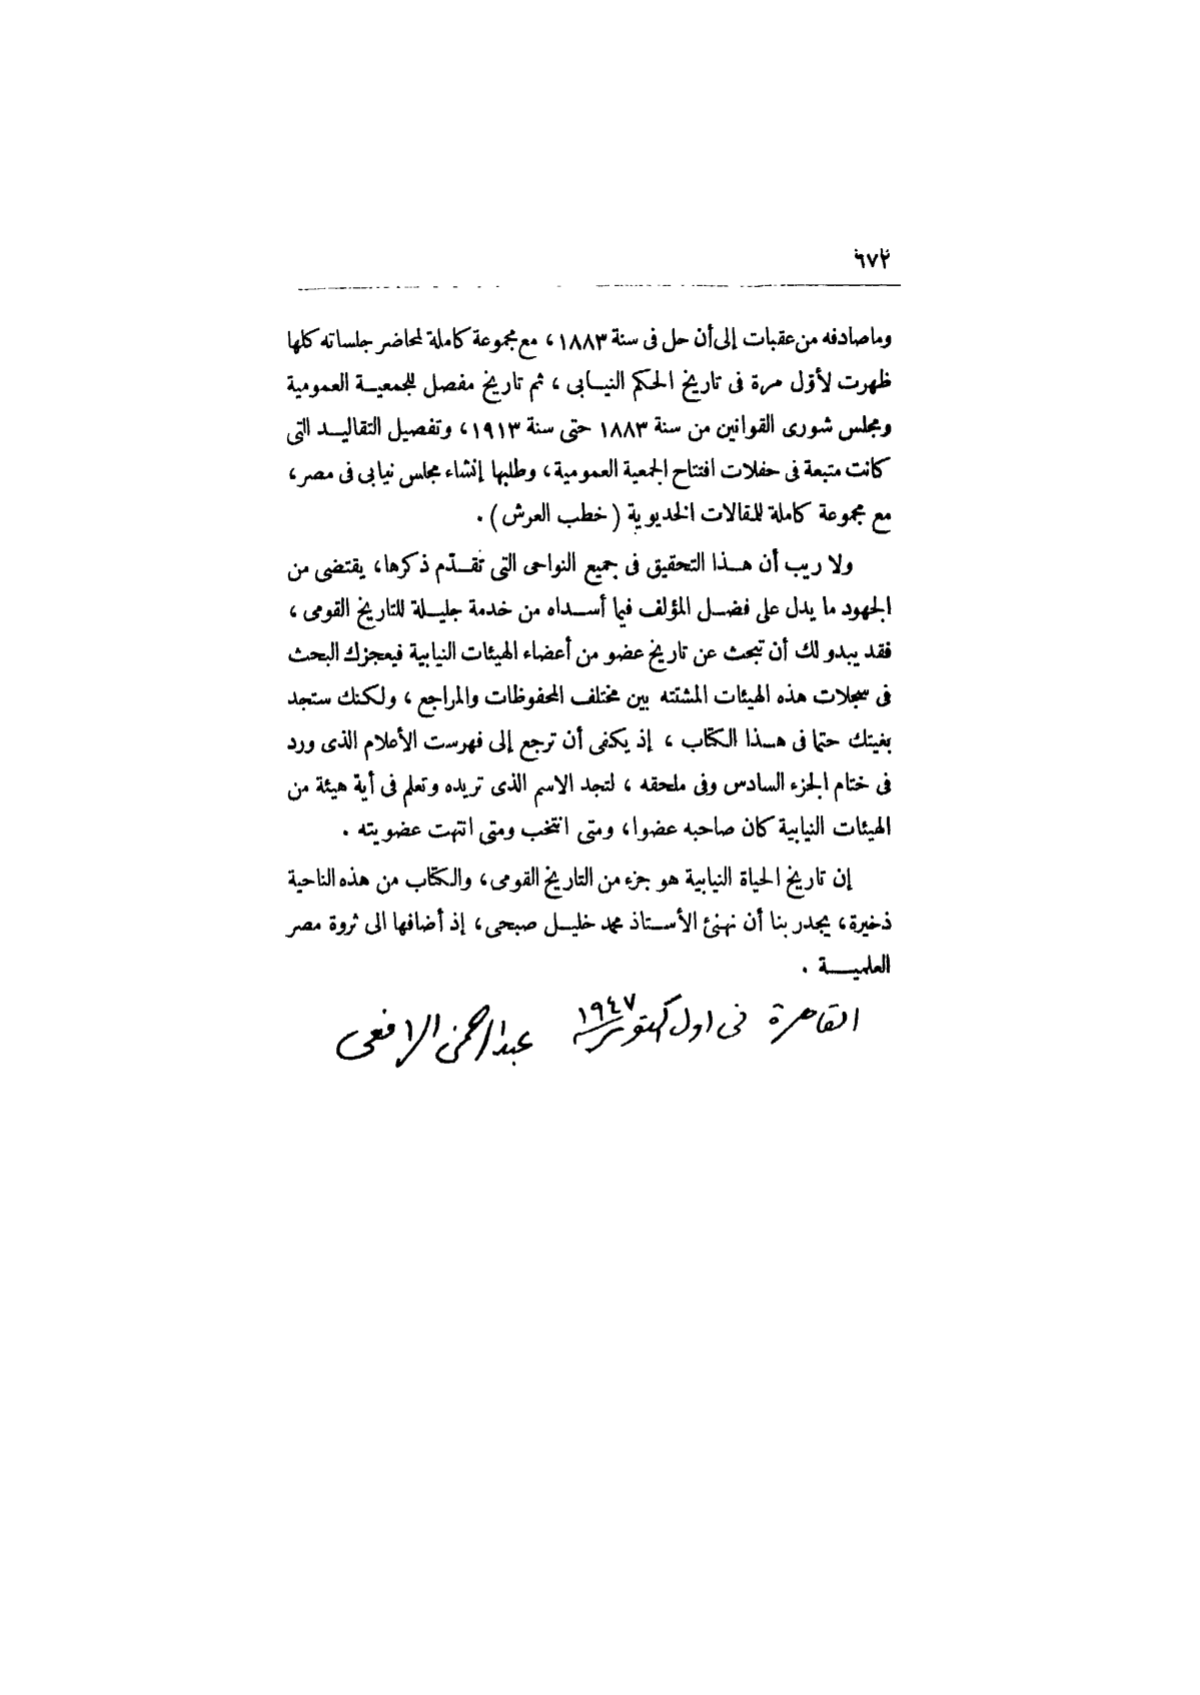 ٦٧٢
وما صادفه من عقبات إلى أن حل فى سنة ١٨٨٣ ، مع مجموعة كاملة لمحاضر جلساته كلها
ظهرت لأوّل مرة فى تاريخ الحكم النيــابى ، ثم تاريخ مفصل للجمعيــة العمومية
ومجلس شورى القوانين من سنة ١٨٨٣ حتى سنة ١٩١٣ ، وتفصيل التقاليــد التى
كانت متبعة فى حفلات افتتاح الجمعية العمومية ، وطلبها إنشاء مجلس نيابى فى مصر ،
مع مجموعة كاملة للمقالات الخديوية ( خطب العرش ) .
ولا ريب أن هــذا التحقيق فى جميع النواحى التى تقــدّم ذكرها ، يقتضى من
الجهود ما يدل على فضــل المؤلف فيما أســداه من خدمة جليــلة للتاريخ القومى ،
فقد يبدو لك أن تبحث عن تاريخ عضو من أعضاء الهيئات النيابية فيعجزك البحث
فى سجلات هذه الهيئات المشتته بين مختلف المحفوظات والمراجع ، ولكنك ستجد
بغيتك حتما فى هــذا الكتاب ، إذ يكفى أن ترجع إلى فهرست الأعلام الذى ورد
فى ختام الجزء السادس وفى ملحقه ، لتجد الاسم الذى تريده وتعلم فى أية هيئة من
الهيئات النيابية كان صاحبه عضوا ، ومتى انتخب ومتى انتهت عضويته .
إن تاريخ الحياة النيابية هو جزء من التاريخ القومى ، والكتاب من هذه الناحية
ذخيرة ، يجدر بنا أن نهنئ الأســتاذ محمد خليــل صبحى ، إذ أضافها الى ثروة مصر
العلميــة .
القاهرة فى اول اكتوبر سنة ١٩٤٧ عبد الرحمن الرافعى